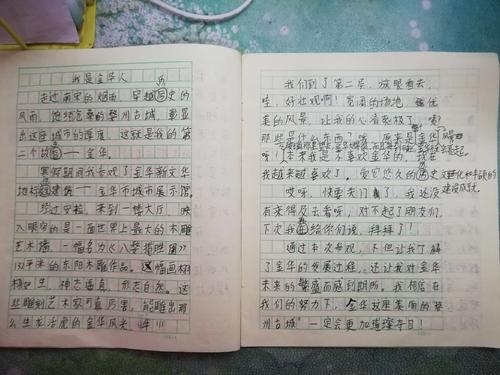 我是金华人
走过南宋的烟雨，穿越历史的
风雨，饱经沧桑的婺州古城，彰显
出这座城市的厚度，这就是我的第
二个故乡——金华。
寒假期间我去观了金华新文华
地标建筑——金华市城市展示馆。
经过安检，来到一楼大厅，映
入眼帘的是一面世界上最大的木雕
艺术墙，一幅名为《八婺揽胜图》
132平米的东阳木雕作品。这幅画材
栩如生，神态逼真，形态自然。这
些雕刻艺术家可真厉害，能雕出那
么生龙活虎的金华风光
我们到了第二层，放眼看去，
哇，好壮观啊！宽阔的场地，优
美的风景，让我的心看
那些是什么东西？哦，原来是金华
呀！本来我是不喜欢金华的，我在
我越来越喜欢了。爱它悠久的历史文化和丰硕的
建设成就。
哎呀，快要关门了，我还没
有来得及去看呀，对不起了朋友们，
下次我回给你们说，拜拜了！
通过本次参观，不但让我了解
了金华的发展过程，还让我对金华
未来的繁盛而感到期盼。我相信在
我们的努力下，金华这座美丽的"婺
州古城"一定会更加璀璨夺目！